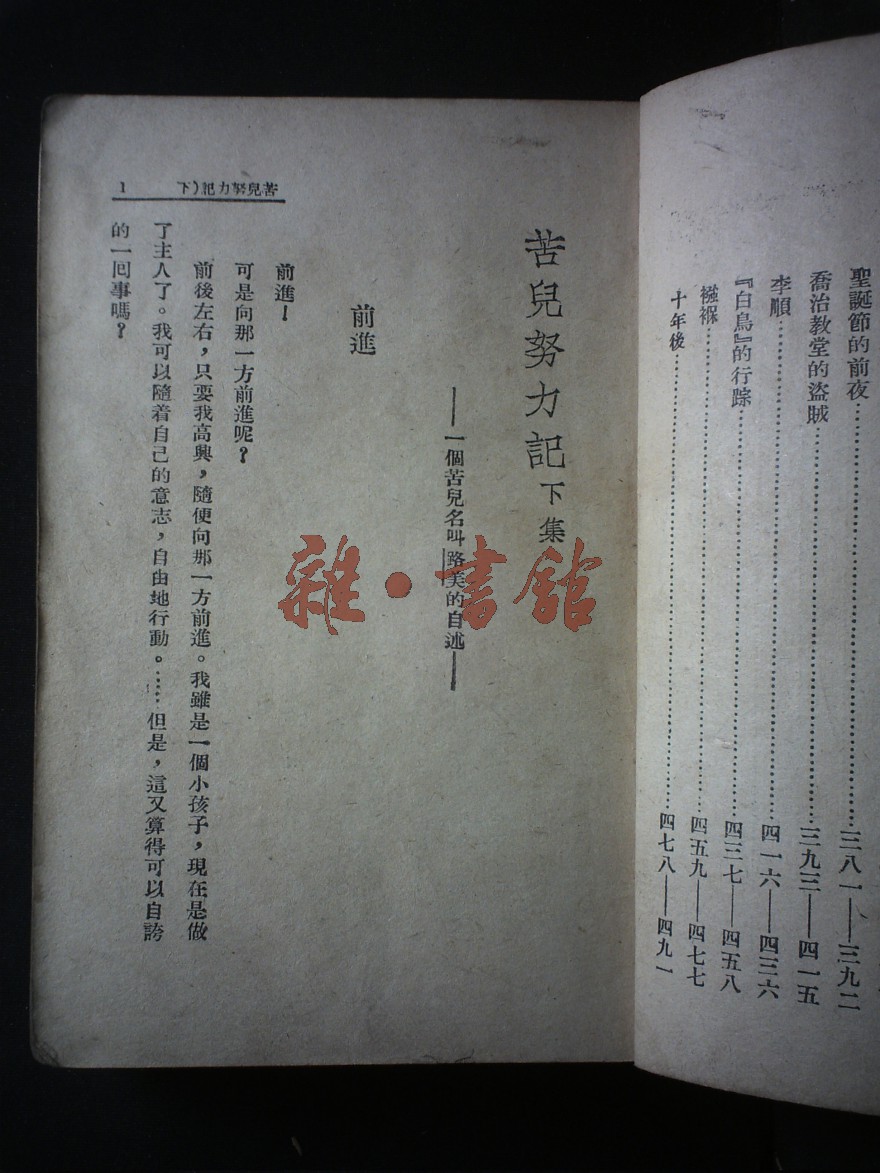 聖誕節的前夜……三八一——三九二
喬治教堂的盜賊……三九三——四一五
李順……四一六——四三六
『白鳥』的行踪……四三七——四五八
襁褓……四五九——四七七
十年後……四七八——四九一
苦兒努力記 下集
——一個苦兒名叫路美的自述——
前進
前進！
可是向那一方前進呢？
前後左右，只要我高興，隨便向那一方前進。我雖是一個小孩子，現在是做
了主人了。我可以隨着自己的意志，自由地行動。……但是，這又算得可以自誇
的一回事嗎？
苦兒努力記(下
1
雜·書館